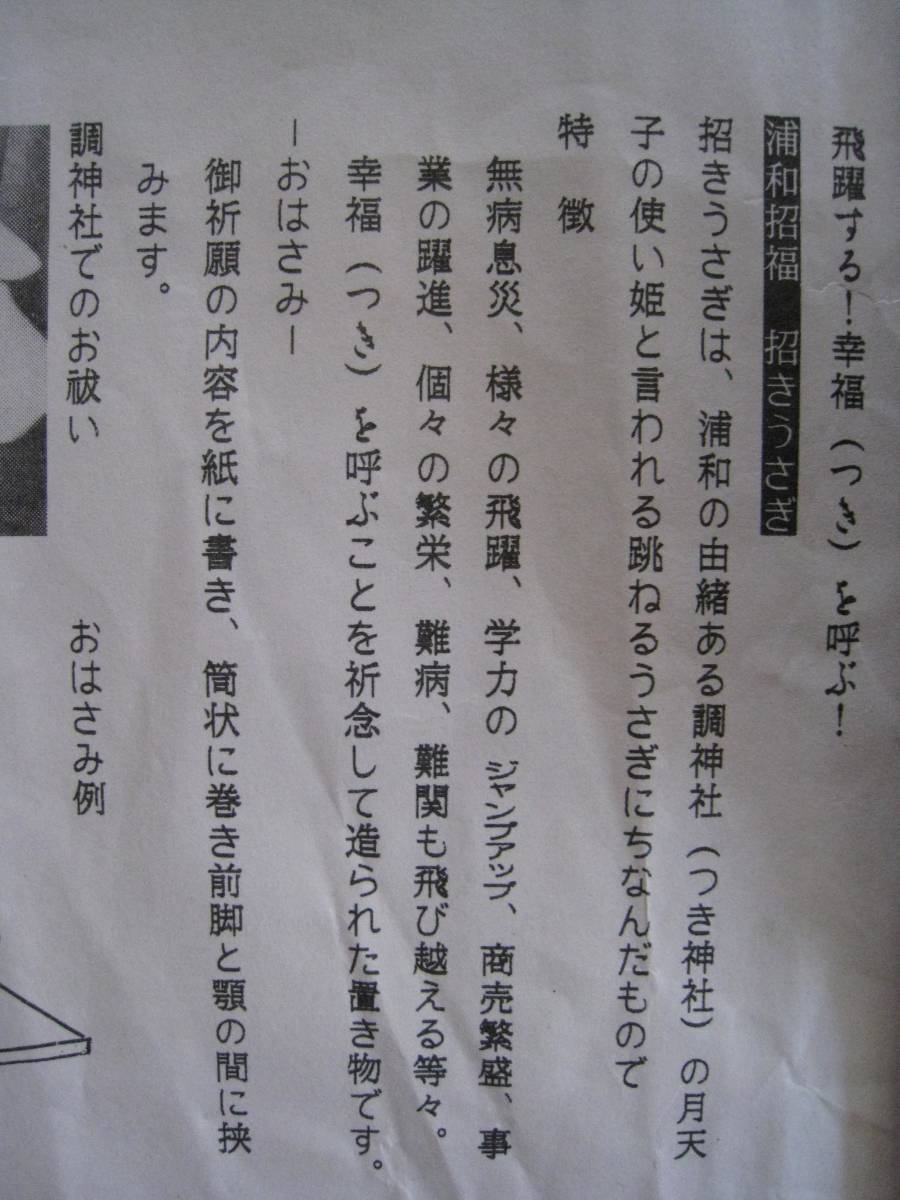 飛躍する！幸福（つき）を呼ぶ！
浦和招福　招きうさぎ
招きうさぎは、浦和の由緒ある調神社（つき神社）の月天
子の使い姫と言われる跳ねるうさぎにちなんだもので
特　徴
無病息災、様々の飛躍、学力のジャンプアップ、商売繁盛、事
業の躍進、個々の繁栄、難病、難関も飛び越える等々。
幸福（つき）を呼ぶことを祈念して造られた置き物です。
ーおはさみー
御祈願の内容を紙に書き、筒状に巻き前脚と顎の間に挟
みます。
調神社でのお祓い　　　　おはさみ例